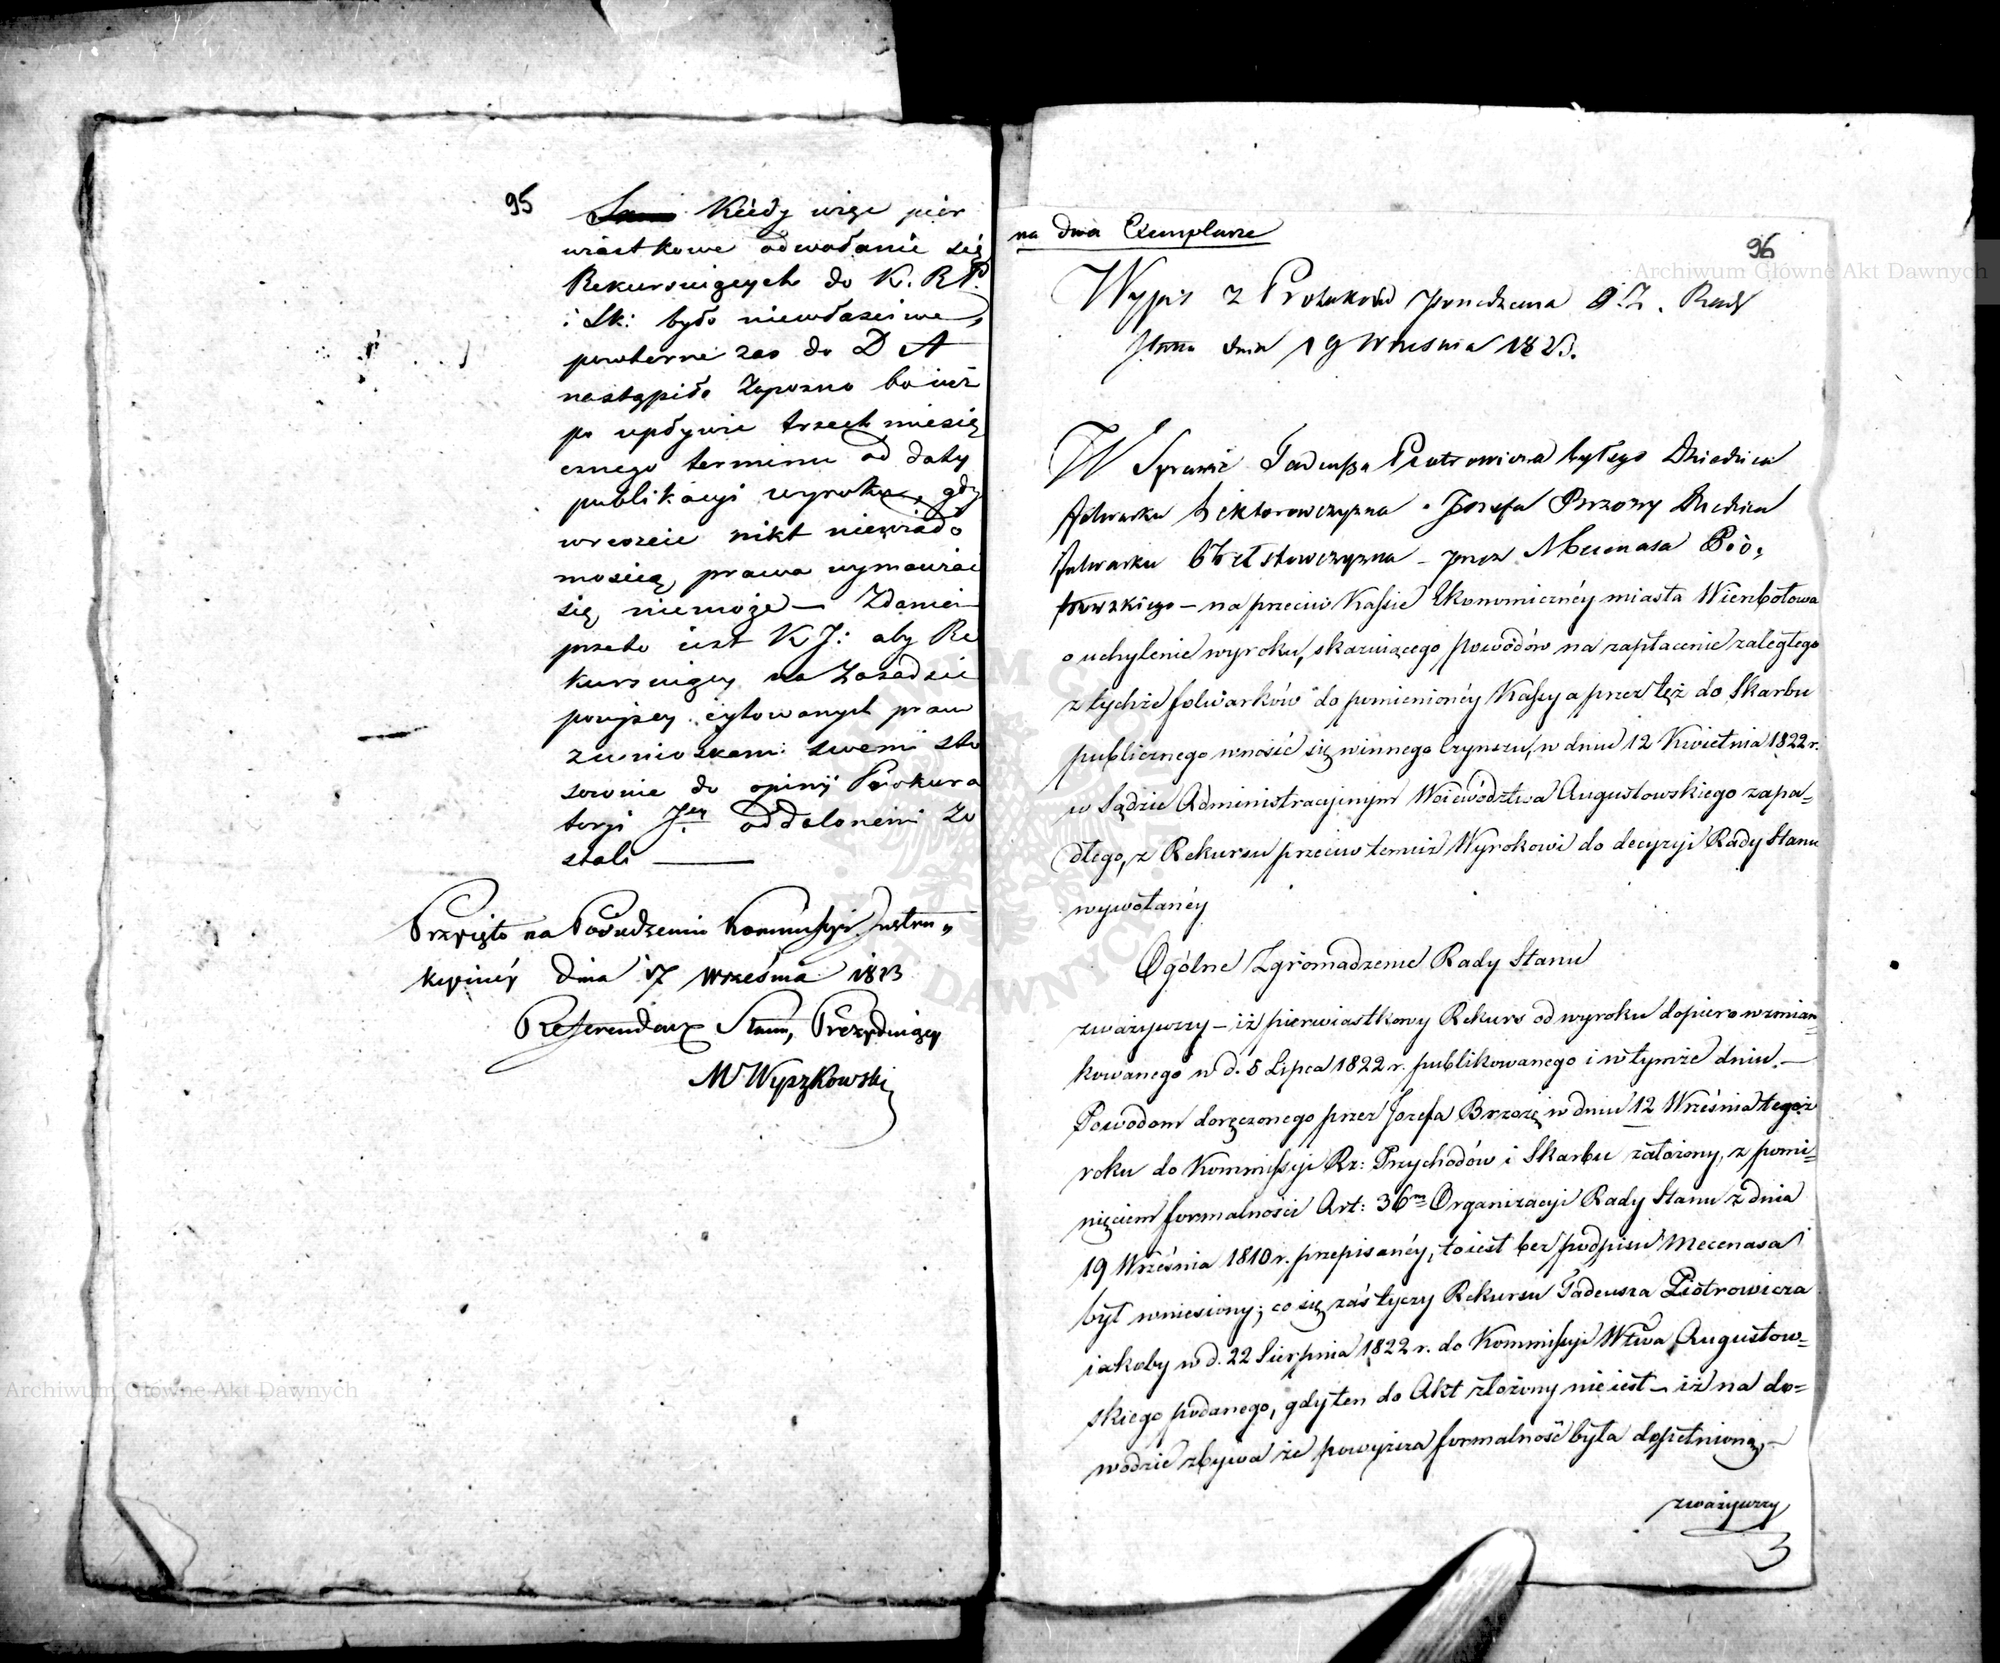 95
Kiedy więc pier
wiastkowe odwołanie się
Rekursuiących do K. R. P.
i Sk: było niewłaściwe,
powtorne zas do D A
nastąpiło Zapozno bo iuż
po upływie trzech miesię
cznego terminu od daty
publikacyi wyroku, gdy
wreszcie nikt niewiado
mością, prawa wymawiać
się niemoże — Zdaniem
przeto iest K J: aby Re
kursuiący na Zasadzie
powyżey cytowanych praw
z wnioskami swemi sto
sownie do opinij Prokura
toryi Jey oddaloneini Zo
stali —
Przyięto na Posiedzeniu Kommissyi Instru„
kcyinéy Dnia 17 Września 1823
Referendarz Stanu, Prezyduiący
M Wyszkowski
na dwa Exemplarze
96
Wypis z Protokołu posiedzenia O. Z. Rady
Stanu dnia 19 Września 1823.
W Sprawie Tadeusza Piotrowicza byłego Dziedzica
folwarku Wiktorowczyzna i Jozefa Brzozy Dziedzica
folwarku — przez Mecenasa
— na przeciw Kassie Ekonomicznéy miasta Wierzbołowa
o uchylenie wyroku, skazuiącego powodów na zapłacenie zaległego
z tychże folwarków do pomienionéy Kassy a przez tęż do Skarbu
publicznego wnosić się winnego Czynszu, w dniu 12 Kwietnia 1822 r.
w Sądzie Administracyjnym Woiewództwa Augustowskiego zapa=
dłego, z Rekursu przeciw temuż Wyrokowi do decyzyi Rady Stanu
wywołanéy
Ogólne Zgromadzenie Rady Stanu
zważywszy — iż pierwiastkowy Rekurs od wyroku dopiero wzmian=
kowanego w d. 5 Lipca 1822 r. publikowanego i w tymże dniu —
Powodom doręczonego przez Jozefa Brzozę w dniu 12 Września tegoż
roku do Kommissyi Rz: Przychodów i Skarbu założony, z pomi=
nięciem formalności Art: 36m Organizacyi Rady Stanu z dnia
19 Września 1810 r. przepisanéy, to iest bez podpisu Mecenasa
był wniesiony; co się zaś tyczy Rekursu Tadeusza Piotrowicza
iakoby w d. 22 Sierpnia 1822 r. do Kommissyi Wtwa Augustow=
skiego podanego, gdy ten do Akt złożony nie iest — iż na do=
wodzie zbywa że powyższa formalność była dopełnioną, —
zważywszy
Archiwum Główne Akt Dawnych
Archiwum Główne Akt Dawnych